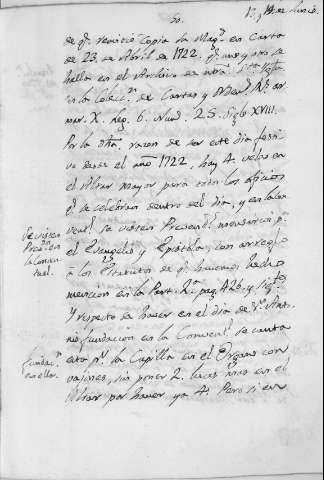 30. 13, y 14 de Junio.
de q.e remitió Copia la Mag.d en Carta
de 23. de Abril de 1722. q.e une y otro se
halla en el Archivo de
en la Colecc.n de Cartas y Orden.s N.º ar-
mar. X. Leg. 6. Num. 25. Siglo XVIII.
Por la dha. razon de ser este dia festi-
vo desde el año 1722, hay 4. velas en
el Altar mayor para todos los oficios
q.e se celebran dentro del dia, y en la Con-
vent.l se visten Present.s p.a
el Evangelio y Epistola, con arreglo
à los Estatutos de q.e hicimos
mencion en la Part. 2.a pag. 426. y sig.tes
Y respeto de haver en el dia de S.n Anto-
nio fundacion en la Convent.l se canta
esta p.r la Capilla en el Organo con
vajones, sin poner 2. luces mas en el
Altar por haver ya 4. Pero si en
Se visten
Pres.s en
la Conven-
tual.
Fundac.n
en ella.